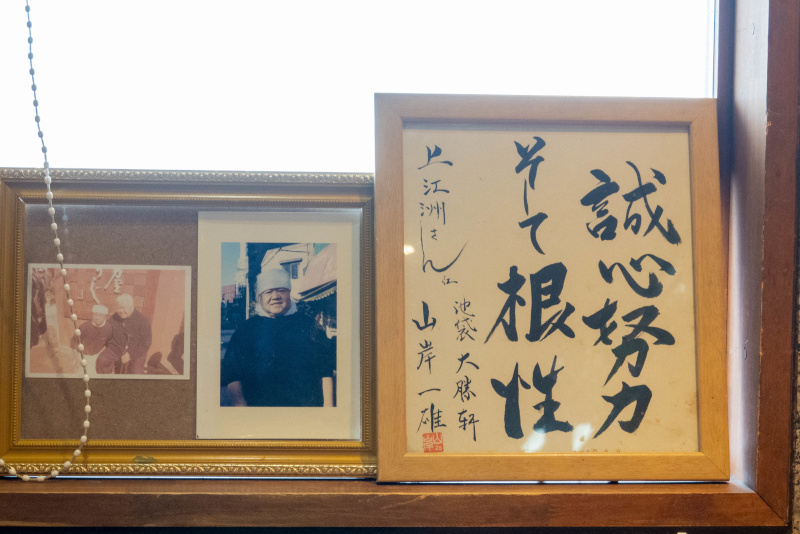 誠心努力
そして根性
池袋大勝軒
山岸一雄
上江洲さん江